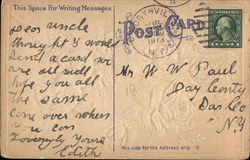 This Space For Writing Messages
POST CARD
1913
N.Y.
Dear uncle
thought I would
send a card we
are all well
hope you all
the same
come over when
u can
Lovingly Yours
Edith
Mr W W Paul
Day County
N.Y
This side for the Address only